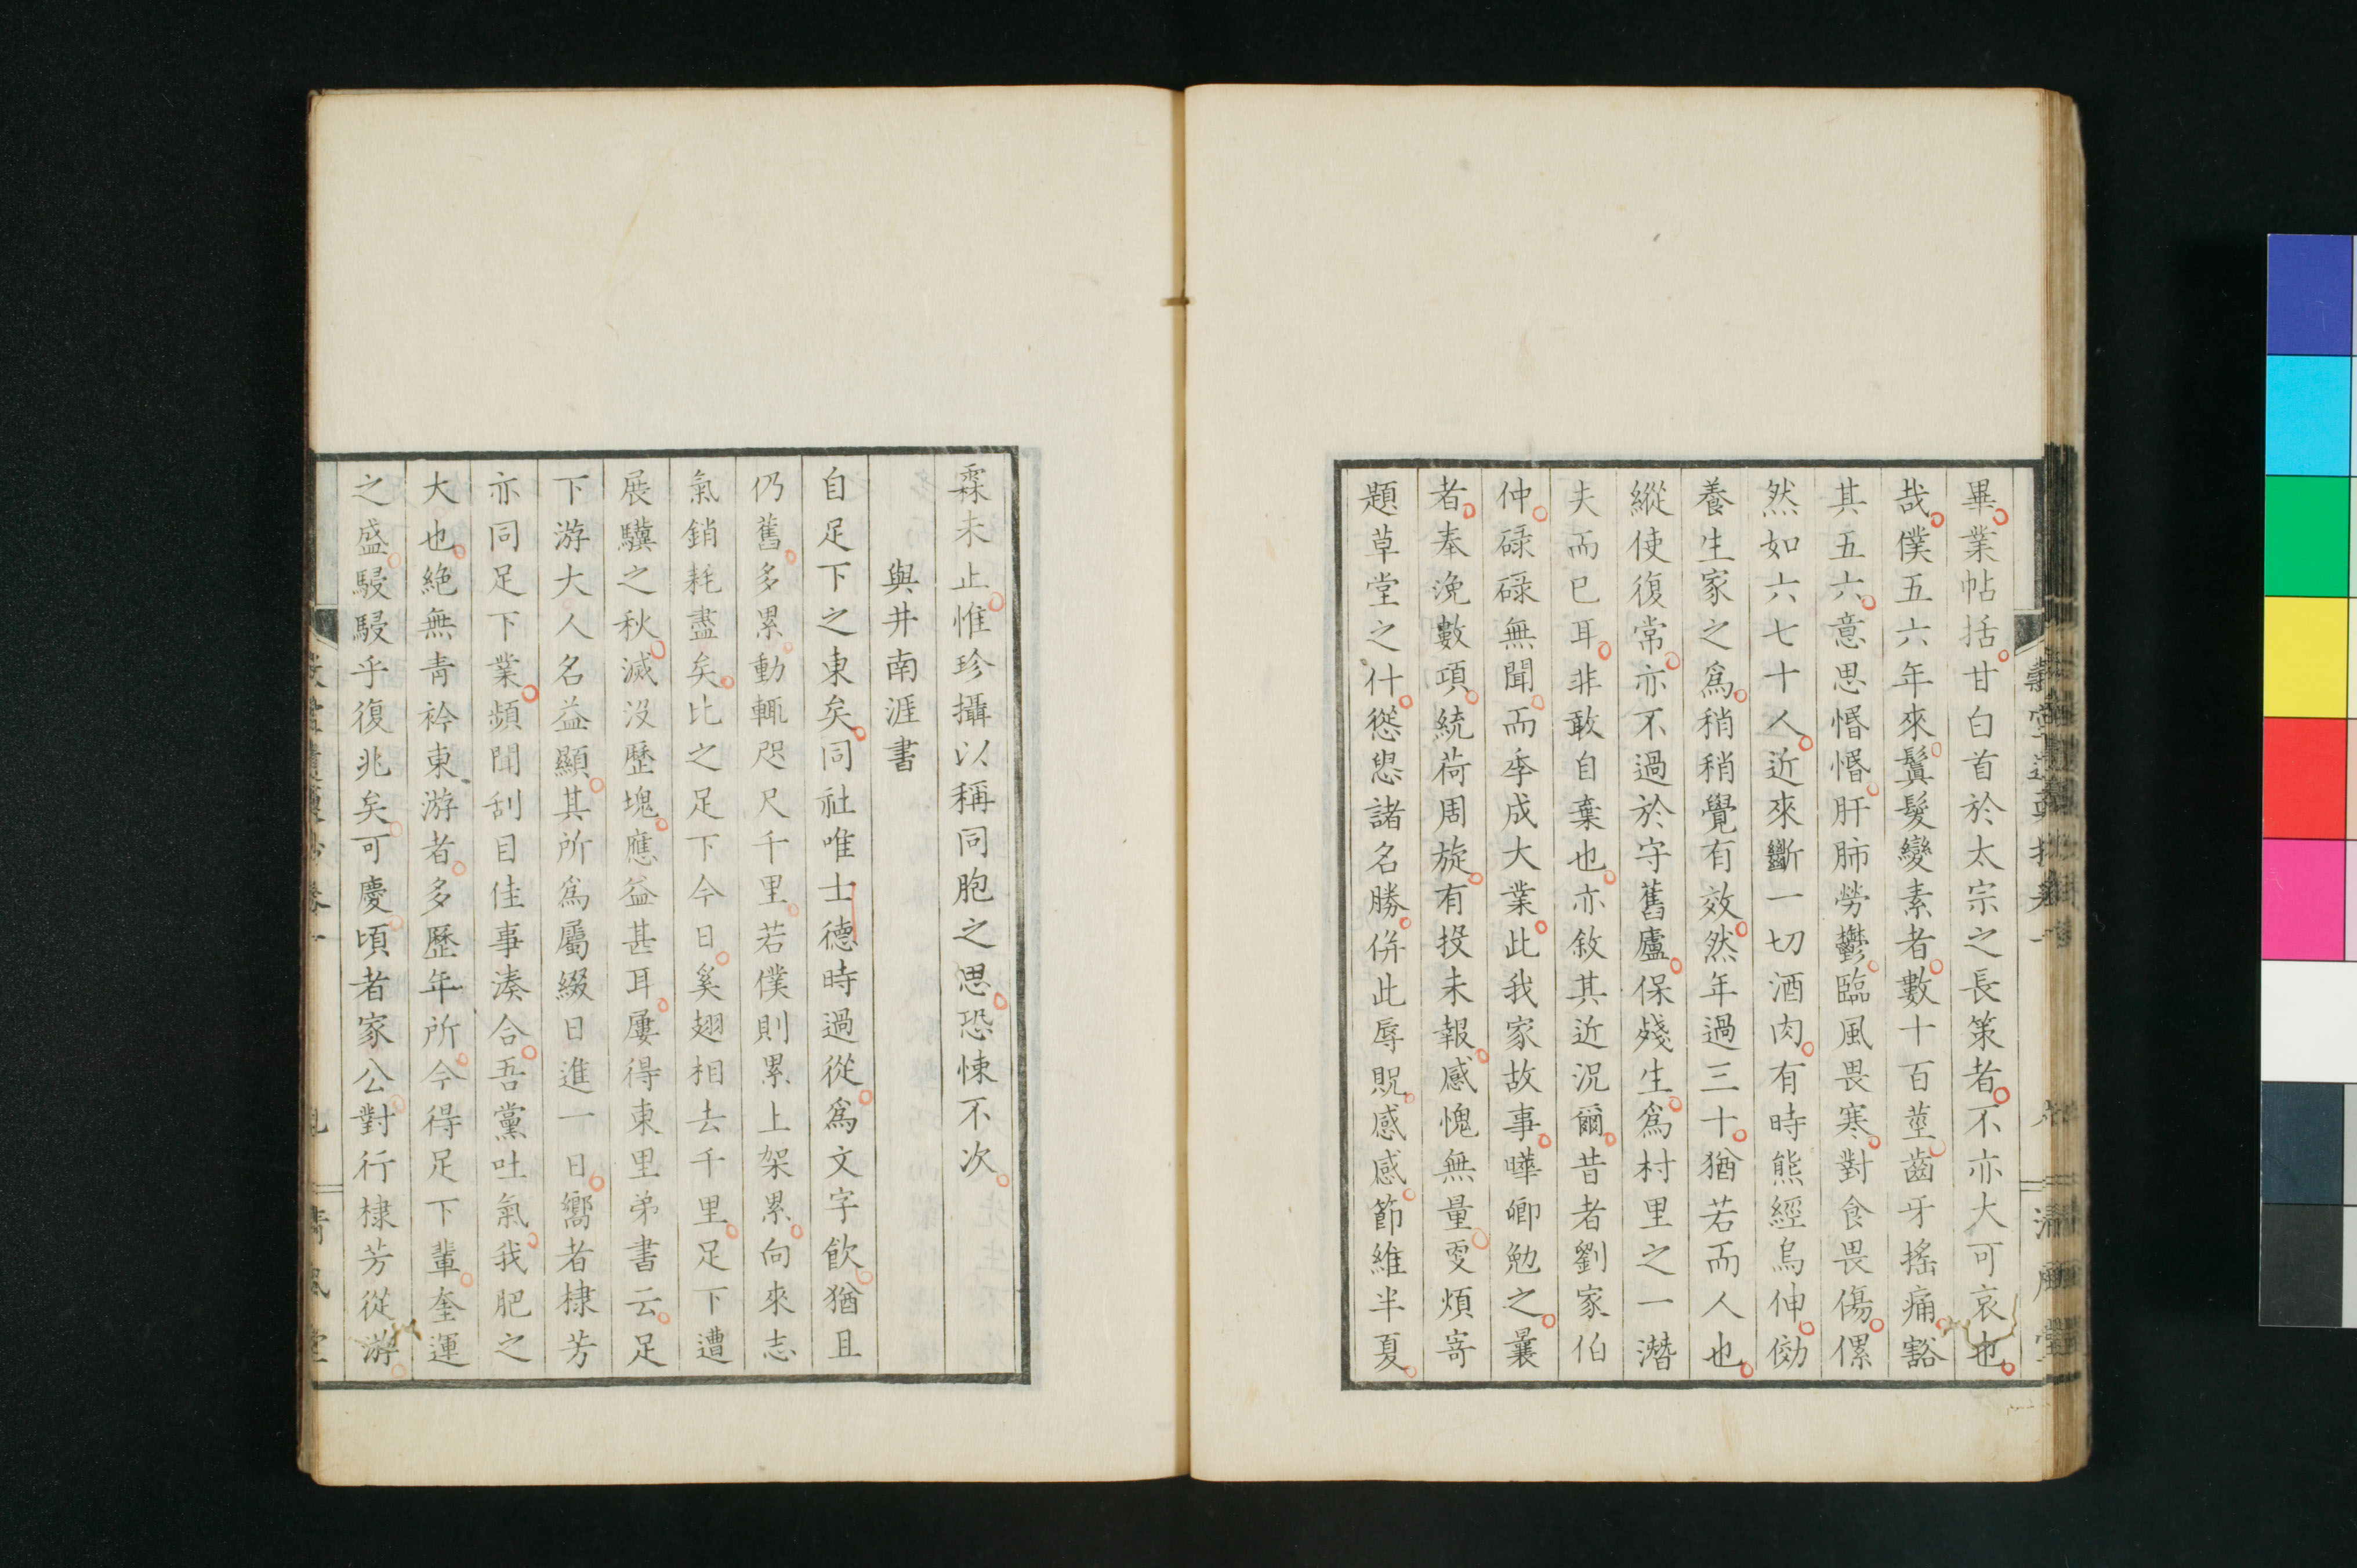 畢業帖括甘白首於太宗之長策者不亦大可哀也
哉僕五六年來鬒髮變素者數十百莖齒牙搖痛豁
其五六意思惛惛肝肺勞鬱臨風畏寒對食畏傷儽
然如六七十人近來斷一切酒肉有時熊經烏伸傚
養生家之爲稍稍覺有效然年過三十猶若而人也
縱使復常亦不過於守舊廬保殘生爲村里之一潛
夫而已耳非敢自棄也亦敘其近況爾昔者劉家伯
仲碌碌無聞而季成大業此我家故事曄卿勉之曩
者奉浼數項統荷周旋有投未報感愧無量更煩寄
題草堂之什慫慂諸名勝併此辱貺感感節維半夏
霖未止惟珍攝以稱同胞之思恐悚不次
與井南涯書
自足下之東矣同社唯士德時過從爲文字飮猶且
仍舊多累動輒咫尺千里若僕則累上架累向來志
氣銷耗盡矣比之足下今日奚翅相去千里足下遭
展驥之秋滅沒歷塊應益甚耳屢得東里弟書云足
下游大人名益顯其所爲屬綴日進一日嚮者棣芳
亦同足下業頻聞刮目佳事湊合吾黨吐氣我肥之
大也絶無靑衿東游者多歷年所今得足下輩奎運
之盛駸駸乎復兆矣可慶頃者家公對行棣芳從游